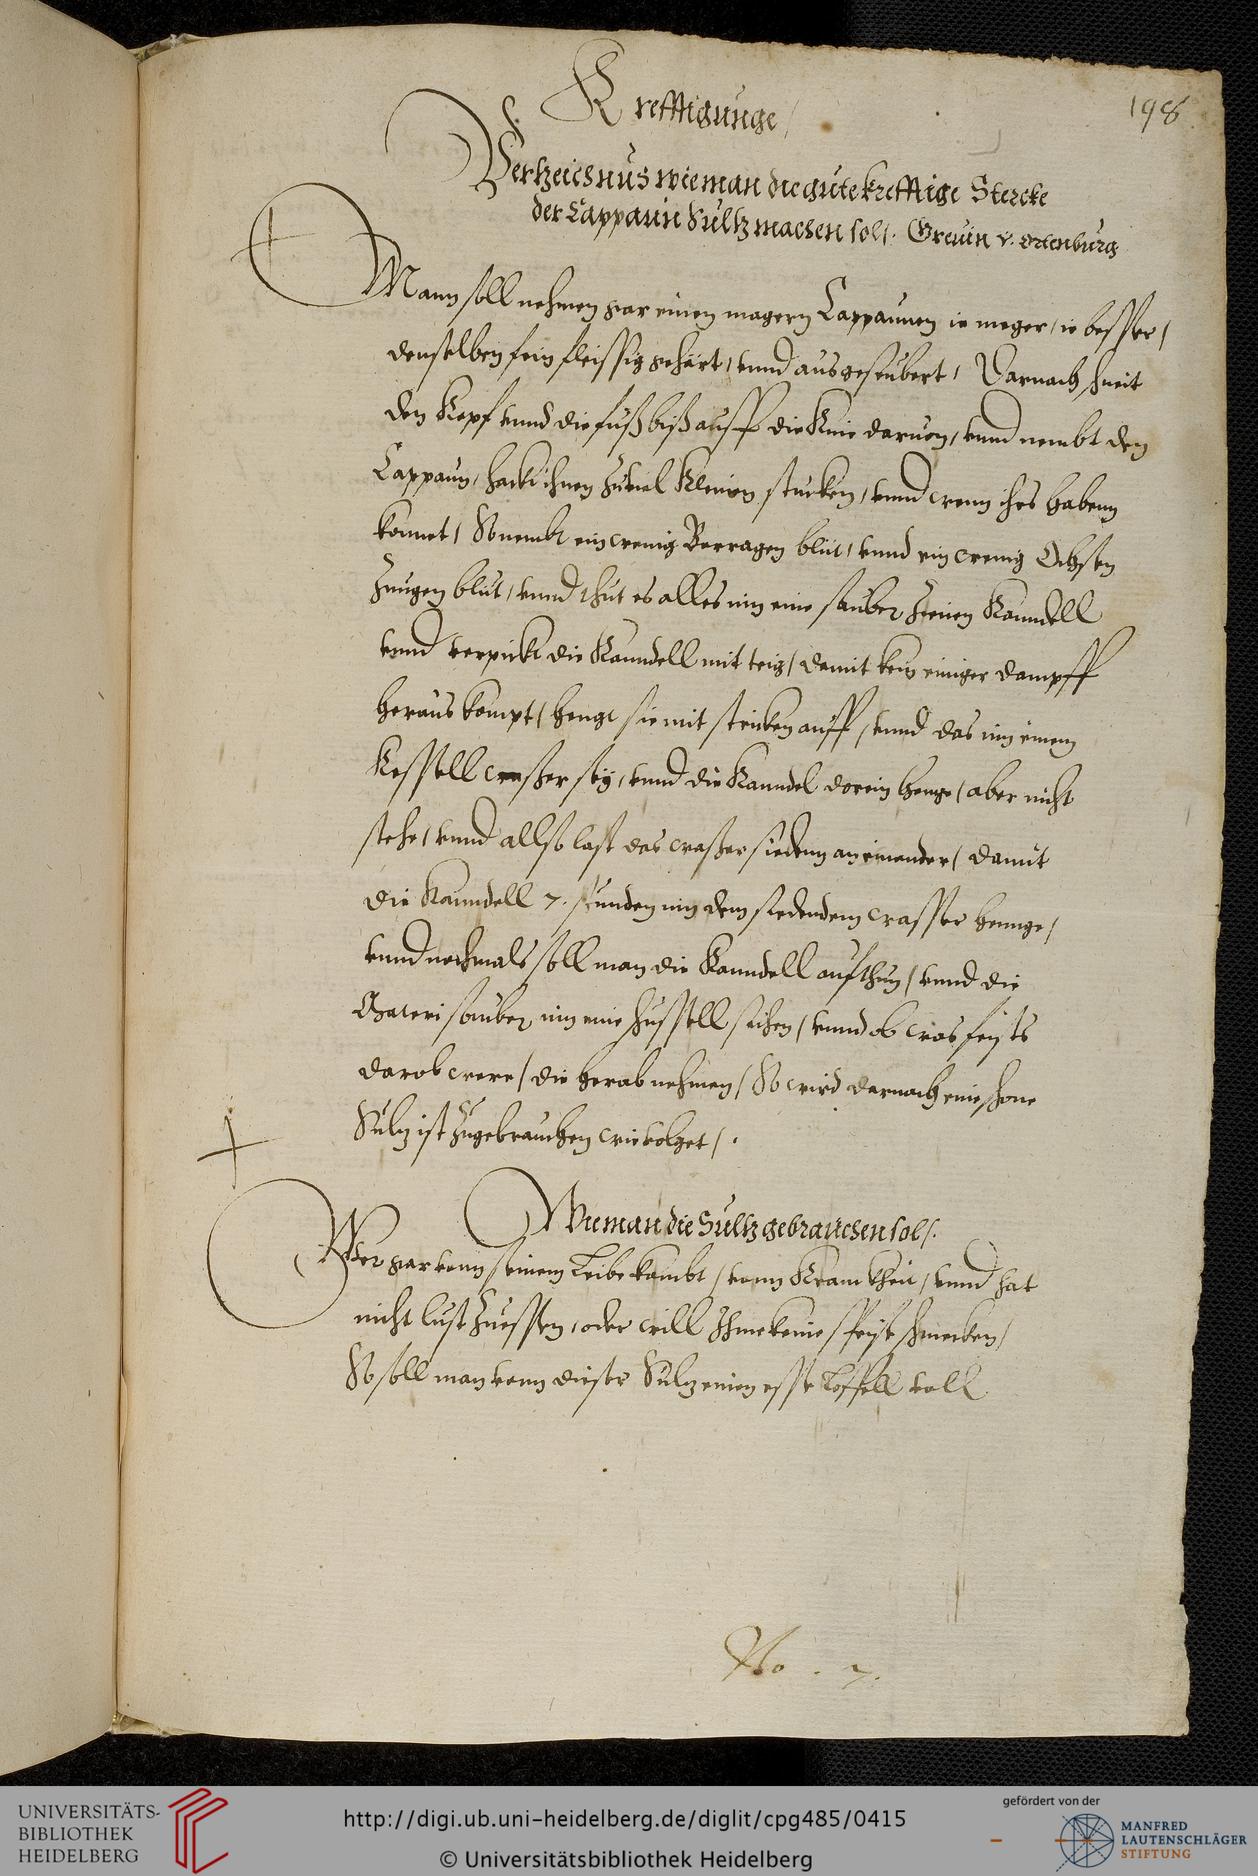 198
Krefftigunge /
Vertzeichnus wie man die gute krefftige Stercke
der Cappaun Sultz machen soll. Grevin v. Ortenburg
Mann soll nehmen gar einen magern Cappaunen ie meger / ie besser /
denselben fein fleissig gehärt / vnnd ausgeseubert / Darnach shneit
den Kopf vnnd die fuß biß auff die Knie daruon, vnnd nembt den
Cappaun, hackt ihnen zu viel Kleinen stucken, vnnd wenn ihrs habenn
konnet / So nembt ein wenig Borragen blüt, vnnd ein wenig Ochsen
Zungen blüt, vnnd thut es alles inn eine sauber Zienen Kanndell
vnnd verpickt die Kanndell mit teig / damit kein einiger dampff
heraus kompt / hengt sie mit stricken auff, vnnd das inn einem
Kessell waßer sey, vnnd die Kanndel darein henge / aber nicht
stehe / vnnd allso last das waßer siedenn an einander / damit
die Kanndell 7. stunden inn dem siedendem wasser hennge /
vnnd nochmals soll man die Kanndell aufthun / vnnd die
Materi sauber inn eine shussell seihen / vnnd ob was feists
darob were / die herab nehmen / So wird darnach eine shone
Sultz ist zugebrauchen wie volget / .
Wie man die Sultz gebrauchen soll.
Wer gar vonn seinem Leibe kombt / vonn Kranckheit / vnnd hat
nicht lust zu essen, oder will Ihme keine speise shmecken /
So soll man vonn dieser Sultz einen esse Löffell voll
No . 7.
UNIVERSITÄTS-
BIBLIOTHEK
HEIDELBERG
http://digi.ub.uni-heidelberg.de/diglit/cpg485/0415
© Universitätsbibliothek Heidelberg
gefördert von der
MANFRED
LAUTENSCHLÄGER
STIFTUNG